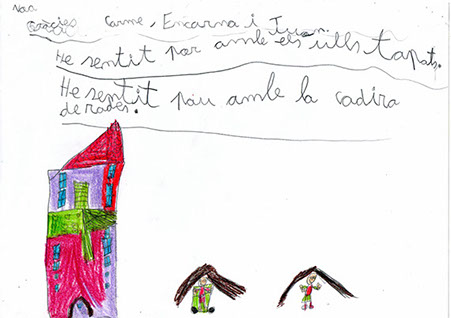 Gracies Carme, Encarna i Juan.
He sentit por amb els ulls tapats.
He sentit pau amb la cadira
de rodes.